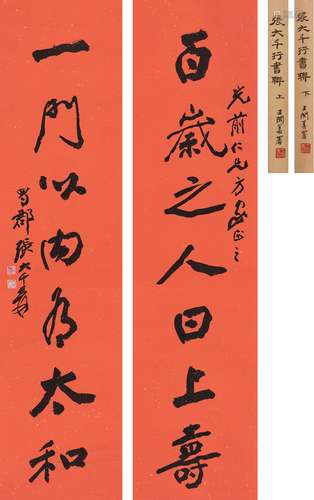 百歲之人曰上壽
光前仁兄方家正之
一門以內為太和
蜀郡張大千爰
張大千行書聯 上 王開善署
張大千行書聯 下 王開善署